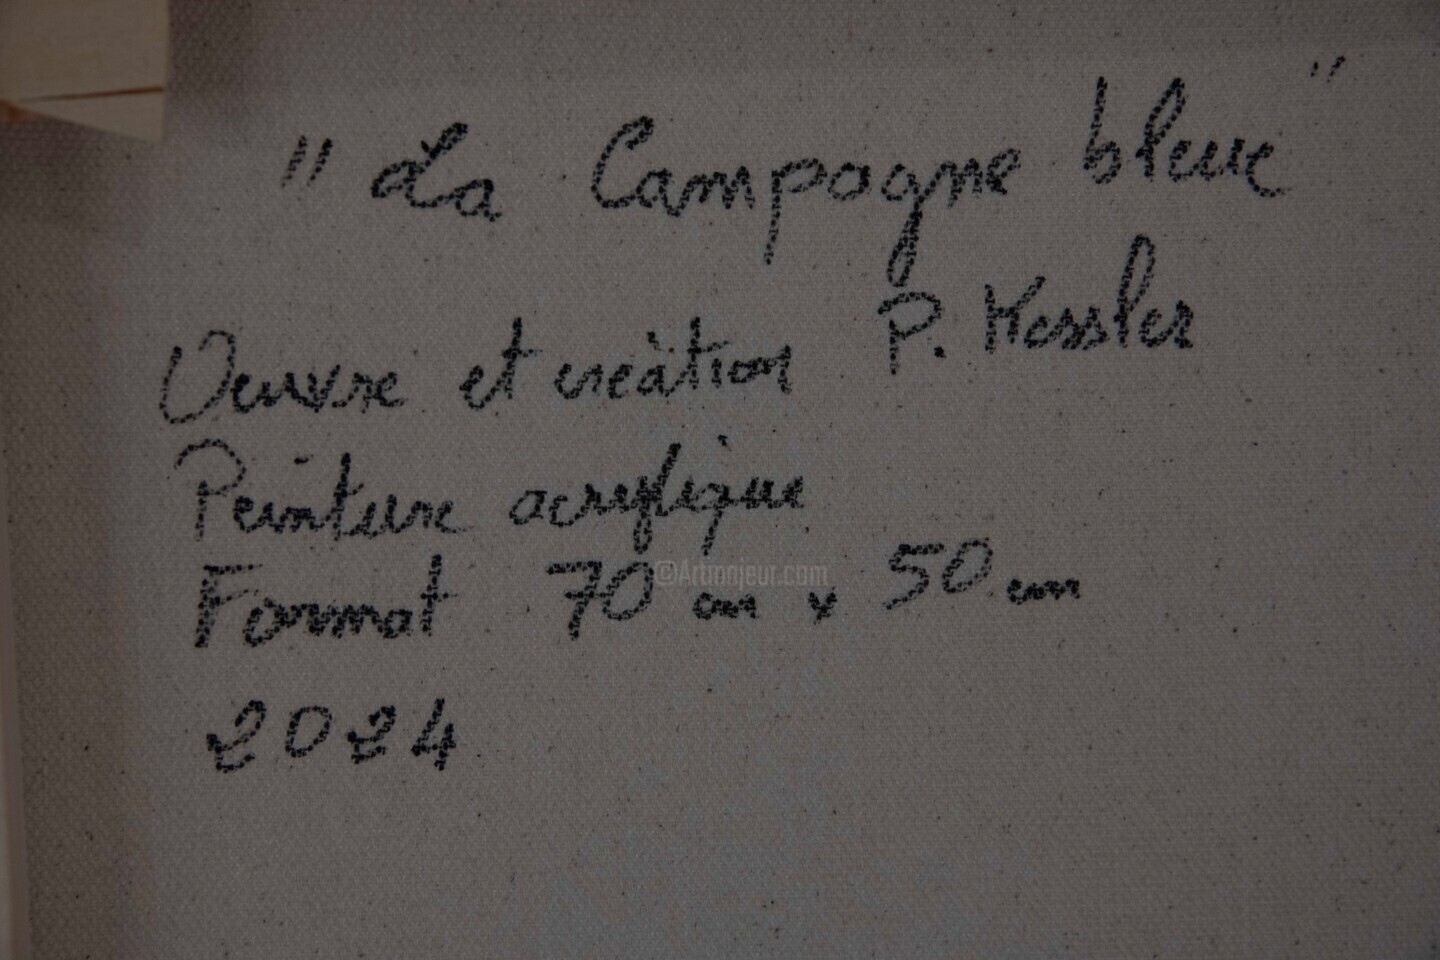 "La Campagne bleue"
Oeuvre et création P. Kessler
Peinture acrylique
Format 70 cm x 50 cm
©Artmonjeur.com
2024